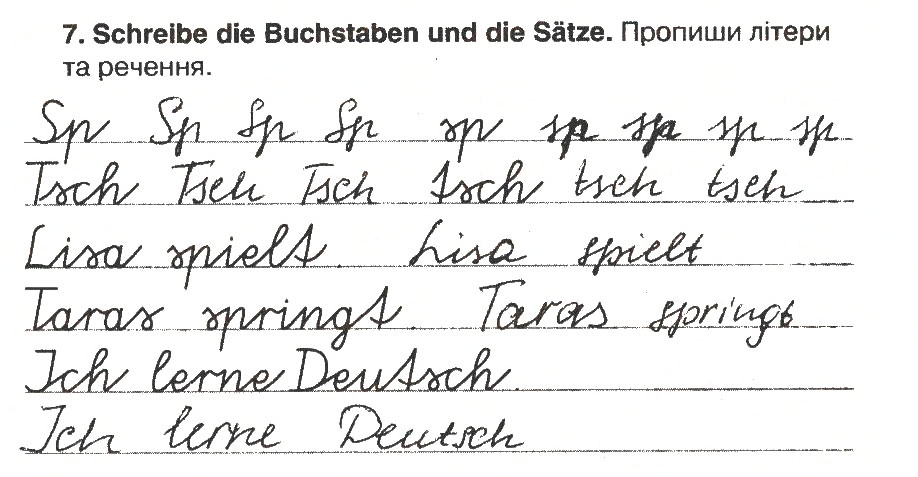 7. Schreibe die Buchstaben und die Sätze. Пропиши літери
та речення.
Sp Sp Sp Sp sp sp sp sp sp
Tsch Tsch Tsch tsch tsch tsch
Lisa spielt. Lisa spielt
Taras springt. Taras springt
Ich lerne Deutsch.
Ich lerne Deutsch